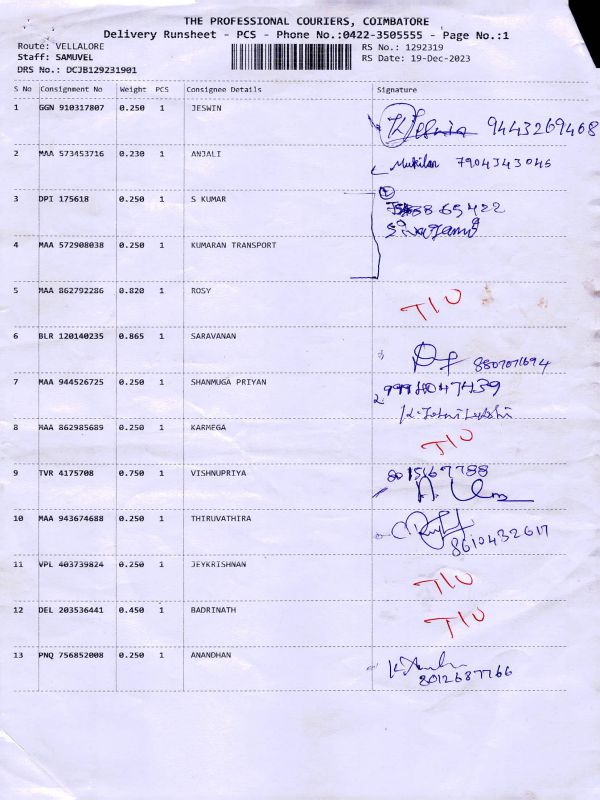 THE PROFESSIONAL COURIERS, COIMBATORE
Delivery Runsheet - PCS - Phone No.:0422-3505555 - Page No.:1
Route: VELLALORE RS No.: 1292319
Staff: SAMUVEL RS Date: 19-Dec-2023
DRS No.: DCJB129231901
S No Consignment No Weight PCS Consignee Details Signature
1 GGN 910317807 0.250 1 JESWIN 9443269468
2 MAA 573453716 0.230 1 ANJALI Mukilan 7904343045
3 DPI 175618 0.250 1 S KUMAR
4 MAA 572908038 0.250 1 KUMARAN TRANSPORT
5 MAA 862792286 0.820 1 ROSY
6 BLR 120140235 0.865 1 SARAVANAN 8807071694
7 MAA 944526725 0.250 1 SHANMUGA PRIYAN
8 MAA 862985689 0.250 1 KARMEGA
9 TVR 4175708 0.750 1 VISHNUPRIYA 8015167788
10 MAA 943674688 0.250 1 THIRUVATHIRA 8610432617
11 VPL 403739824 0.250 1 JEYKRISHNAN
12 DEL 203536441 0.450 1 BADRINATH
13 PNQ 756852008 0.250 1 ANANDHAN 8012687766